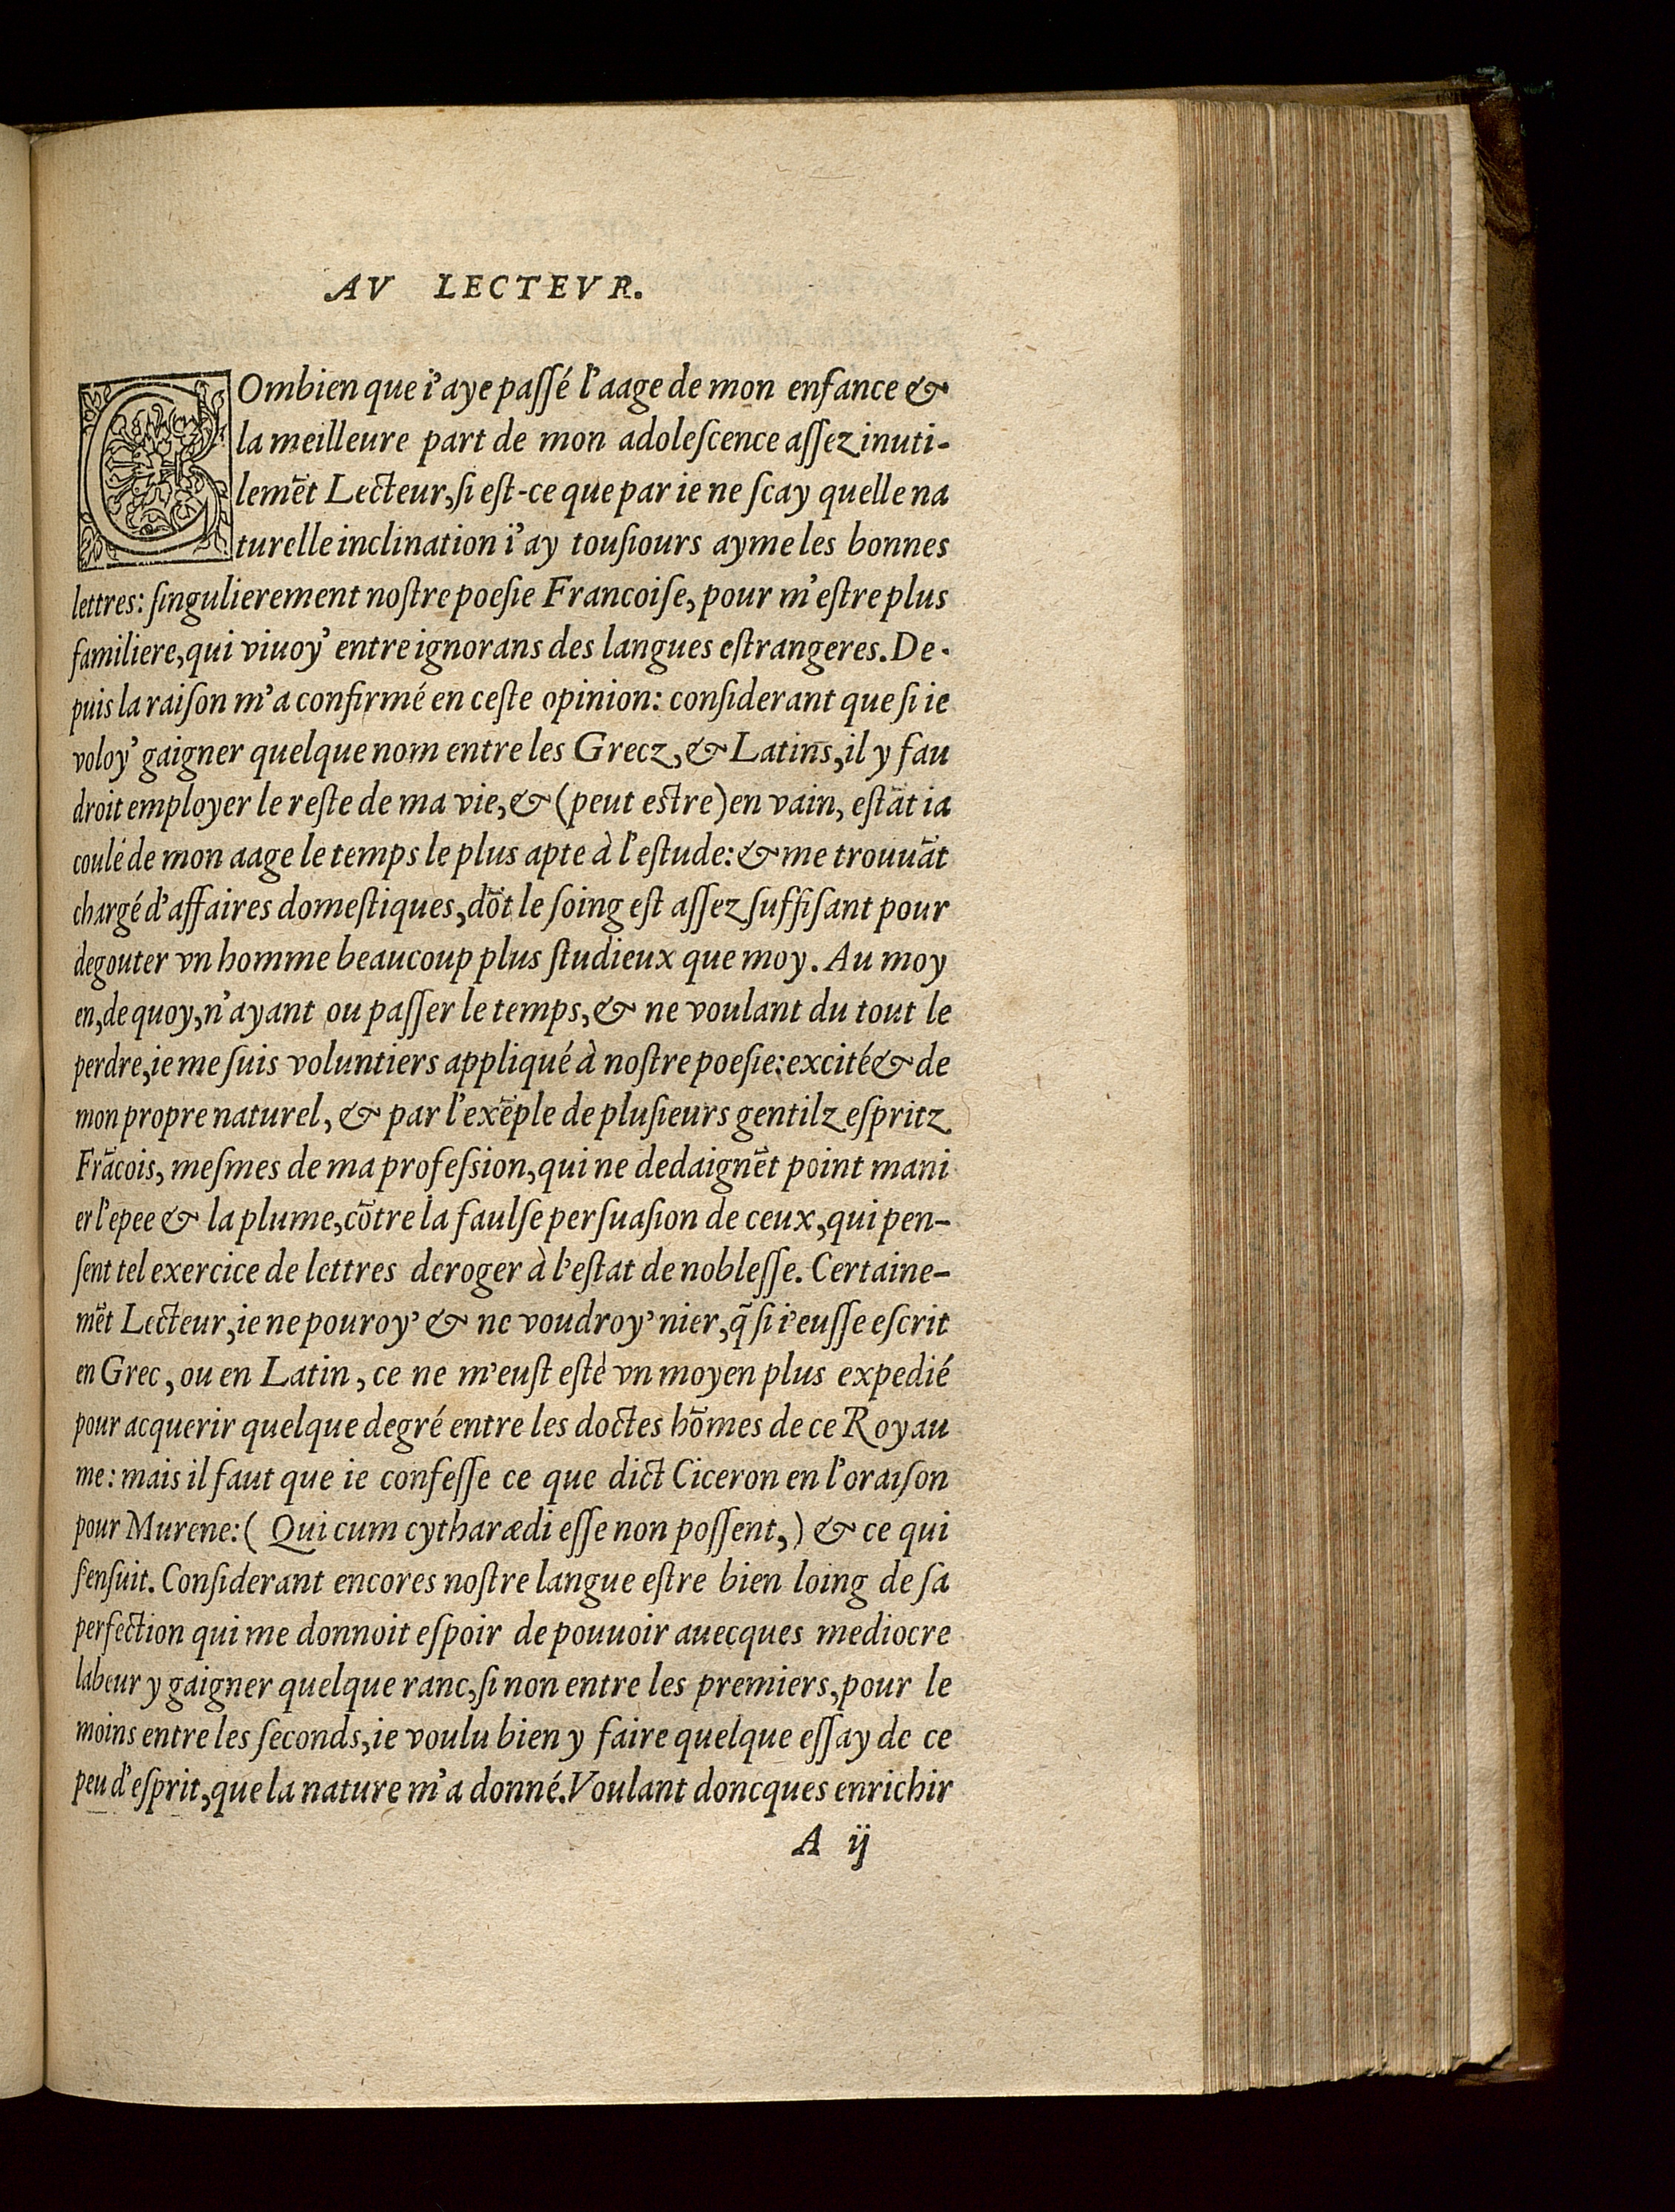 AV LECTEVR.
COmbien que i'aye paſſé l'aage de mon enfance &
la meilleure part de mon adoleſcence aſſez inuti-
lemēt Lecteur, ſi eſt-ce que par ie ne ſcay quelle na
turelle inclination i'ay touſiours ayme les bonnes
lettres: ſingulierement noſtre poeſie Francoiſe, pour m'eſtre plus
familiere, qui viuoy' entre ignorans des langues eſtrangeres. De-
puis la raiſon m'a confirmé en ceſte opinion: conſiderant que ſi ie
voloy' gaigner quelque nom entre les Grecz, & Latins, il y fau
droit employer le reſte de ma vie, & (peut estre) en vain, eſtāt ia
coulé de mon aage le temps le plus apte à l'eſtude: & me trouuāt
chargé d'affaires domeſtiques, dōt le ſoing eſt aſſez ſuffiſant pour
degouter vn homme beaucoup plus ſtudieux que moy. Au moy
en, de quoy, n'ayant ou paſſer le temps, & ne voulant du tout le
perdre, ie me ſuis voluntiers appliqué à noſtre poeſie: excité & de
mon propre naturel, & par l'exēple de pluſieurs gentilz eſpritz
Frācois, meſmes de ma profeſsion, qui ne dedaignēt point mani
er l'epee & la plume, cōtre la faulſe perſuaſion de ceux, qui pen-
ſent tel exercice de lettres deroger à l'eſtat de nobleſſe. Certaine-
mēt Lecteur, ie ne pouroy' & ne voudroy' nier, q̃ ſi i'euſſe eſcrit
en Grec, ou en Latin, ce ne m'euſt eſté vn moyen plus expedié
pour acquerir quelque degré entre les doctes hōmes de ce Royau
me: mais il faut que ie confeſſe ce que dict Ciceron en l'oraiſon
pour Murene: ( Qui cum cytharædi eſſe non poſſent,) & ce qui
ſ'enſuit. Conſiderant encores noſtre langue eſtre bien loing de ſa
perfection qui me donnoit eſpoir de pouuoir auecques mediocre
labeur y gaigner quelque ranc, ſi non entre les premiers, pour le
moins entre les ſeconds, ie voulu bien y faire quelque eſſay de ce
peu d'eſprit, que la nature m'a donné. Voulant doncques enrichir
A ij